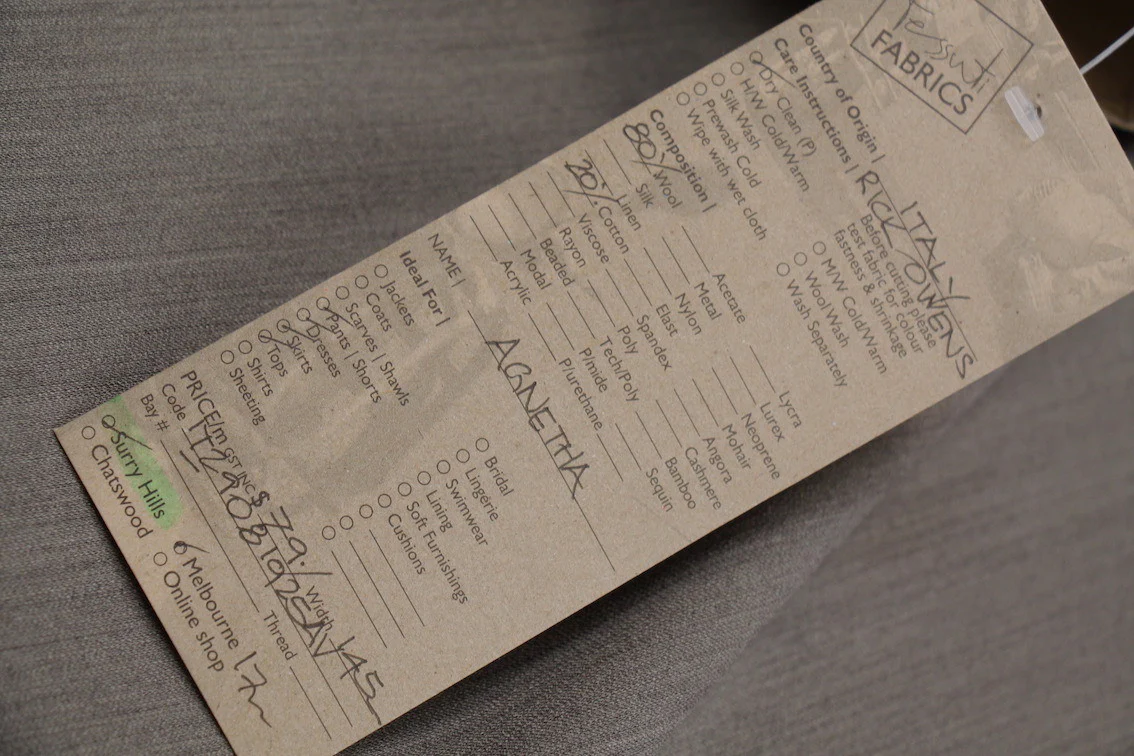 Tessuti
FABRICS
Country of Origin | ITALY
Care Instructions | RICK OWENS
Dry Clean (P)
H/W Cold/Warm
Silk Wash
Prewash Cold
Wipe with wet cloth
Before cutting please
test fabric for colour
fastness & shrinkage
M/W Cold/Warm
Wool Wash
Wash Separately
Composition |
80% Wool
Silk
Linen
20% Cotton
Viscose
Rayon
Beaded
Modal
Acrylic
Acetate
Metal
Nylon
Elast
Spandex
Poly
Tech/Poly
P/mide
P/urethane
Lycra
Lurex
Neoprene
Mohair
Angora
Cashmere
Bamboo
Sequin
NAME | AGNETHA
Ideal For |
Jackets
Coats
Scarves | Shawls
Pants | Shorts
Dresses
Skirts
Tops
Shirts
Sheeting
Bridal
Lingerie
Swimwear
Lining
Soft Furnishings
Cushions
PRICE/m GST INC $79.- Width 145
Code
Bay # Thread
Surry Hills
Chatswood
Melbourne
Online shop